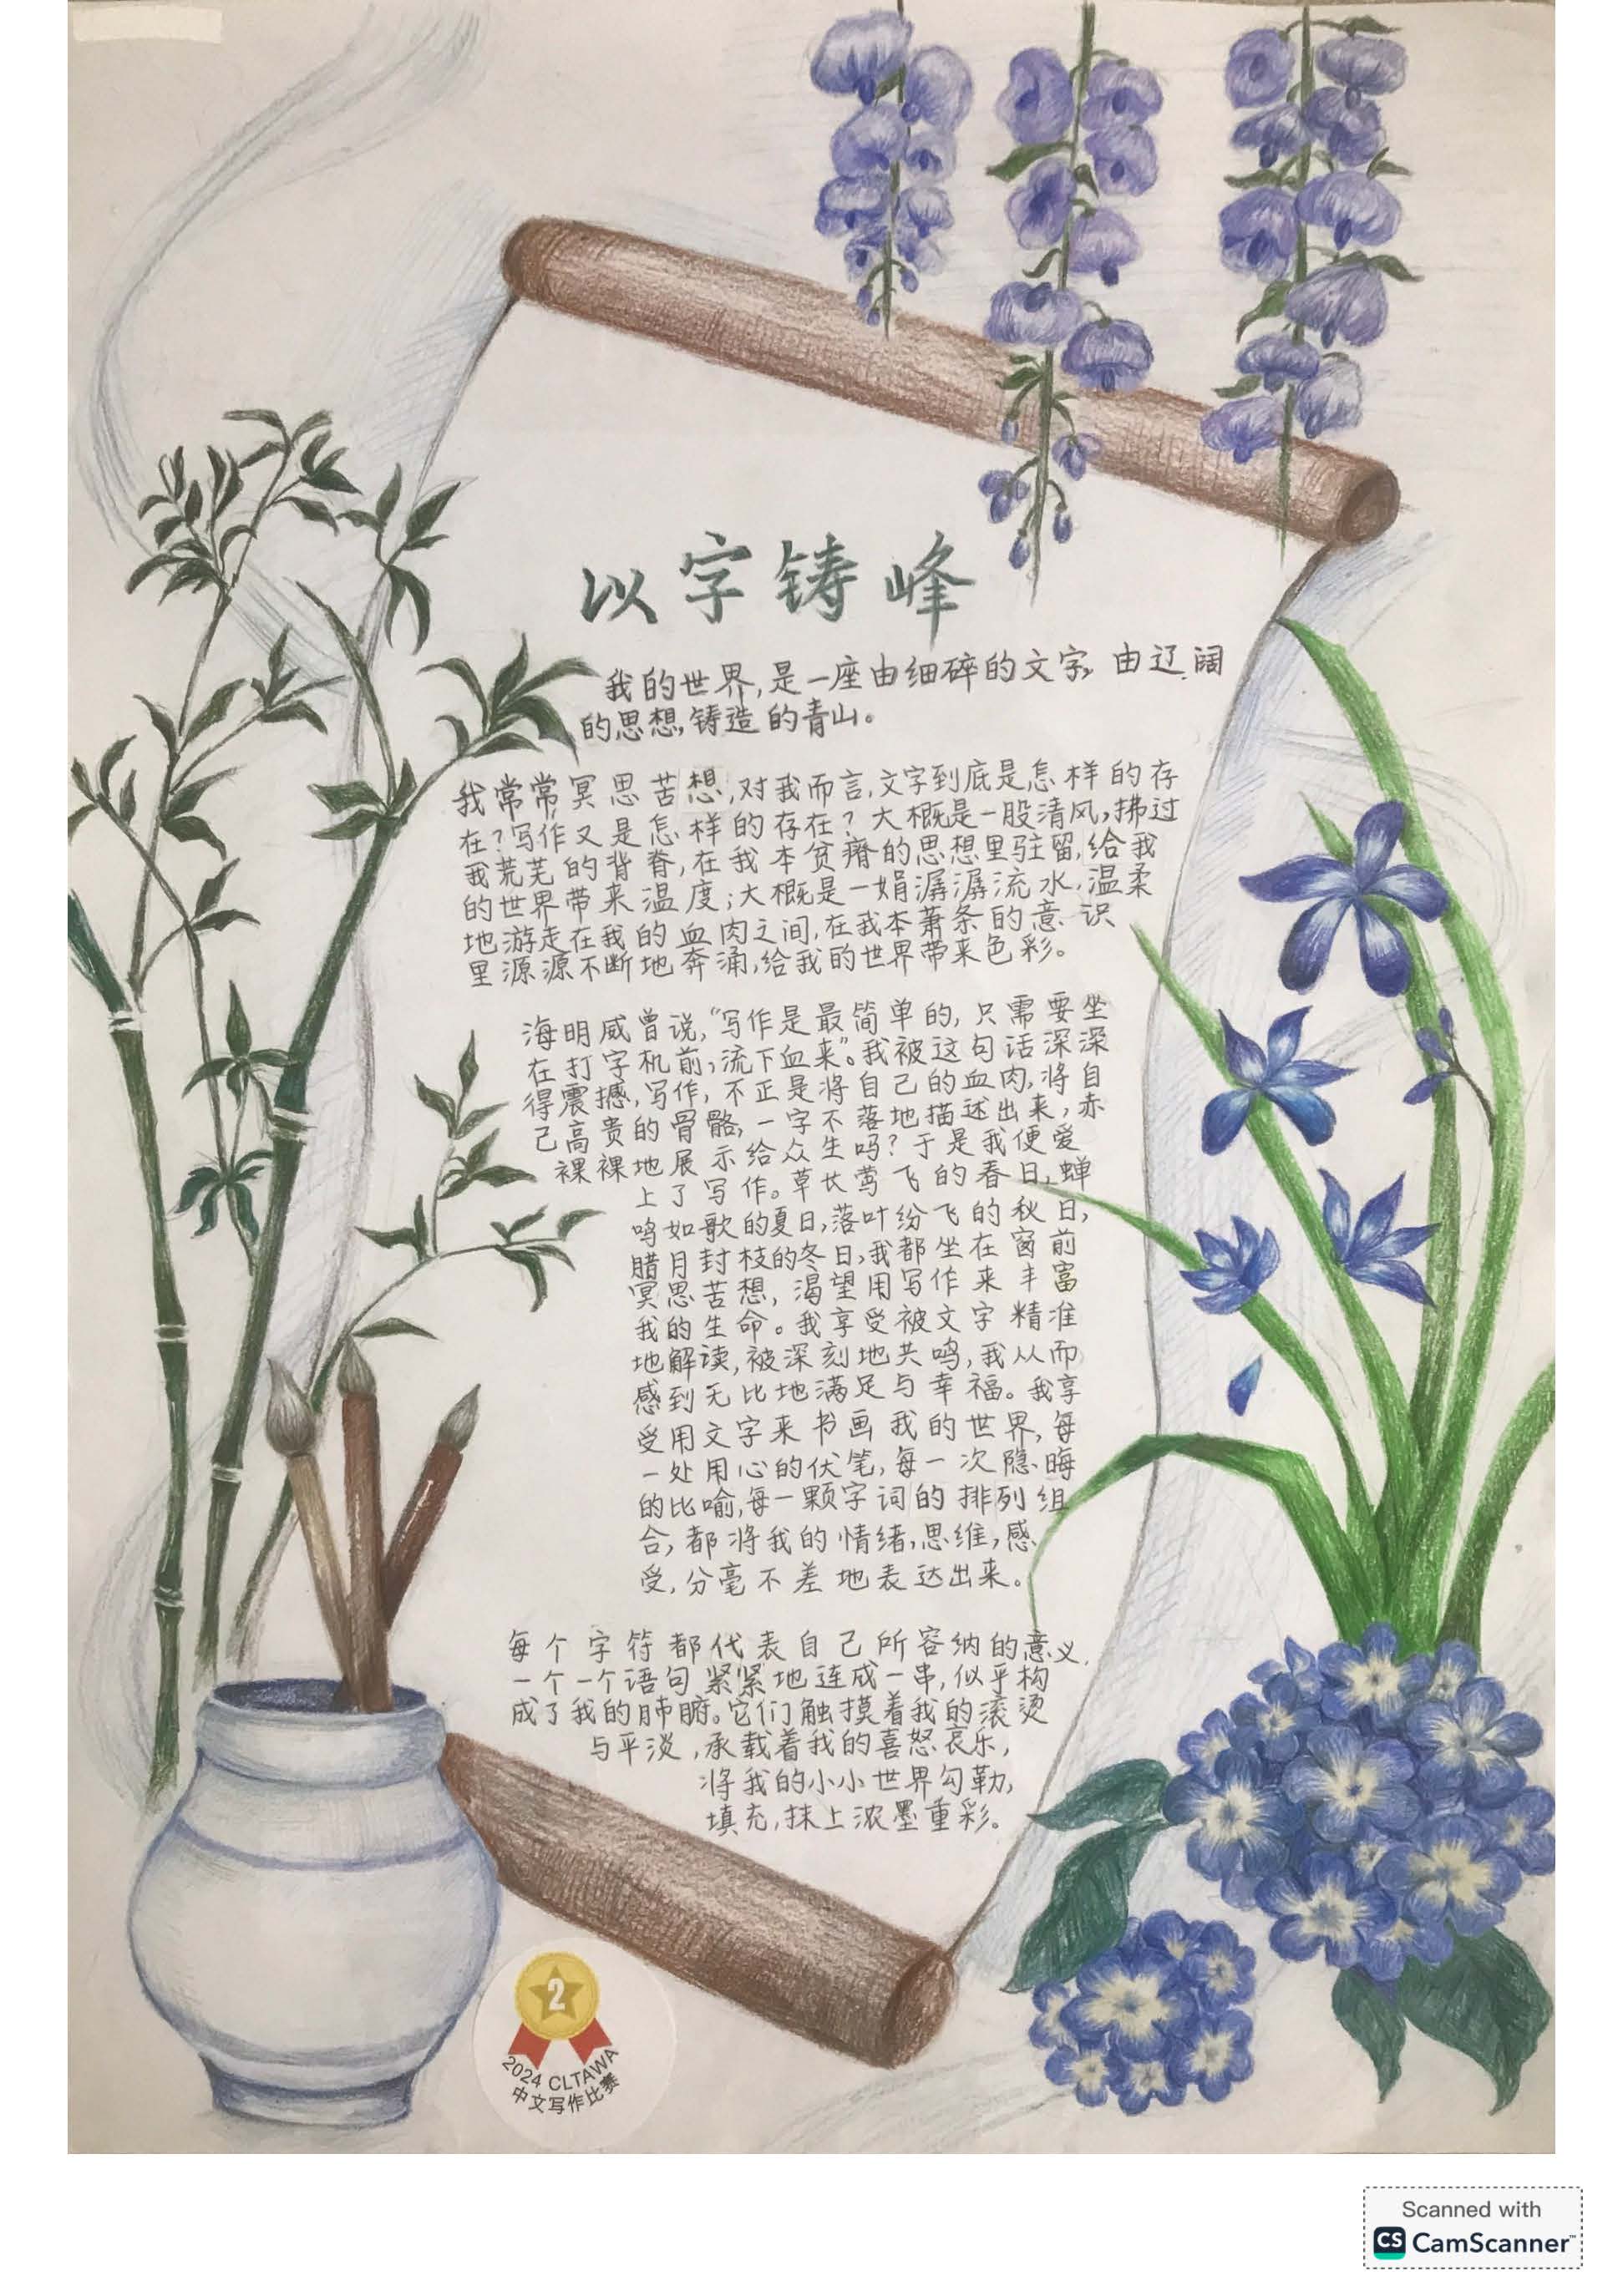 以字铸峰
我的世界,是一座由细碎的文字,由辽阔
的思想,铸造的青山。
我常常冥思苦想,对我而言,文字到底是怎样的存
在?写作又是怎样的存在?大概是一股清风,拂过
我荒芜的背脊,在我本贫瘠的思想里驻留,给我
的世界带来温度;大概是一娟潺潺流水,温柔
地游走在我的血肉之间,在我本萧条的意识
里源源不断地奔涌,给我的世界带来色彩。
海明威曾说,“写作是最简单的,只需要坐
在打字机前,流下血来”。我被这句话深深
得震撼,写作,不正是将自己的血肉,将自
己高贵的骨骼,一字不落地描述出来,赤
裸裸地展示给众生吗?于是我便爱
上了写作。草长莺飞的春日,蝉
鸣如歌的夏日,落叶纷飞的秋日,
腊月封枝的冬日,我都坐在窗前
冥思苦想,渴望用写作来丰富
我的生命。我享受被文字精准
地解读,被深刻地共鸣,我从而
感到无比地满足与幸福。我享
受用文字来书画我的世界,每
一处用心的伏笔,每一次隐晦
的比喻,每一颗字词的排列组
合,都将我的情绪,思维,感
受,分毫不差地表达出来。
每个字符都代表自己所容纳的意义,
一个一个语句紧紧地连成一串,似乎构
成了我的肺腑。它们触摸着我的滚烫
与平淡,承载着我的喜怒哀乐,
将我的小小世界勾勒,
填充,抹上浓墨重彩。
2
2024 CLTAWA
中文写作比赛
Scanned with
CS CamScanner™